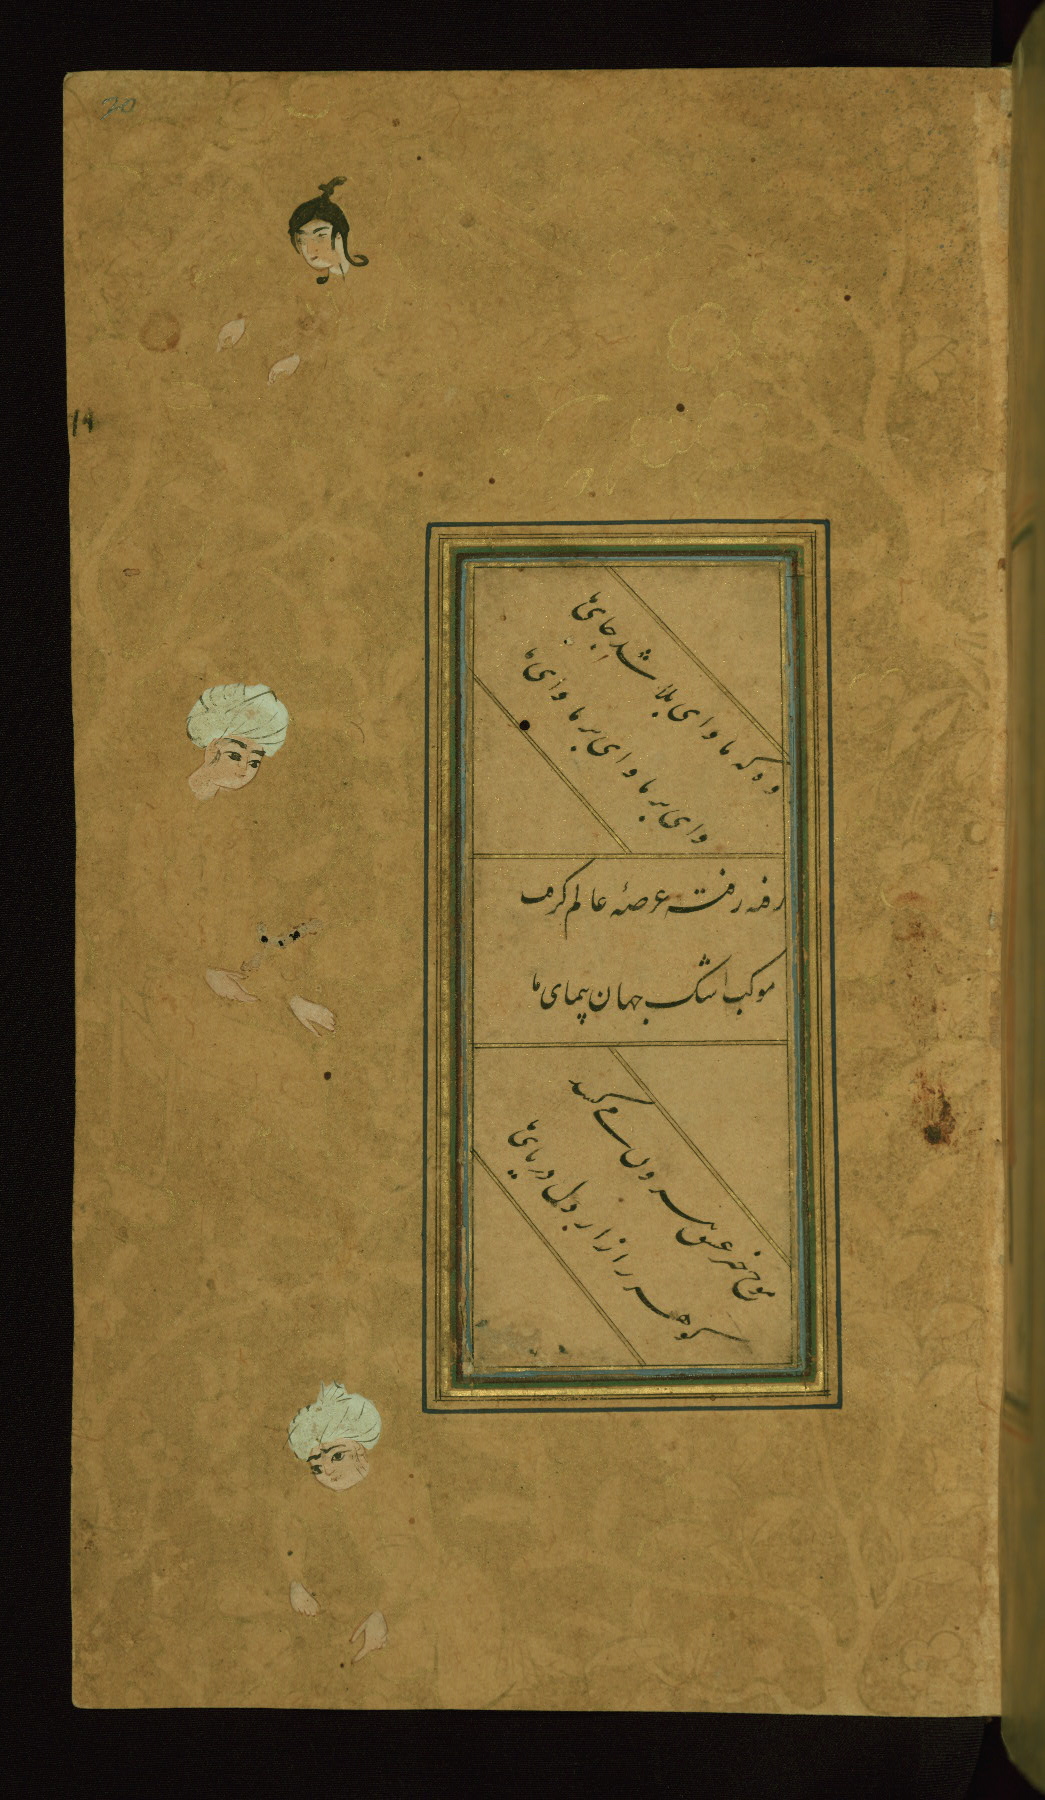 20
19
وه که ما وای بلا شد جای ما
وای بر ما وای بر ما وای ما
رفته رفته عرصهٔ عالم گرفت
موکب اشک جهان پیمای ما
موج خز عشق سر می کشد
گوهر راز از دل دریای ما